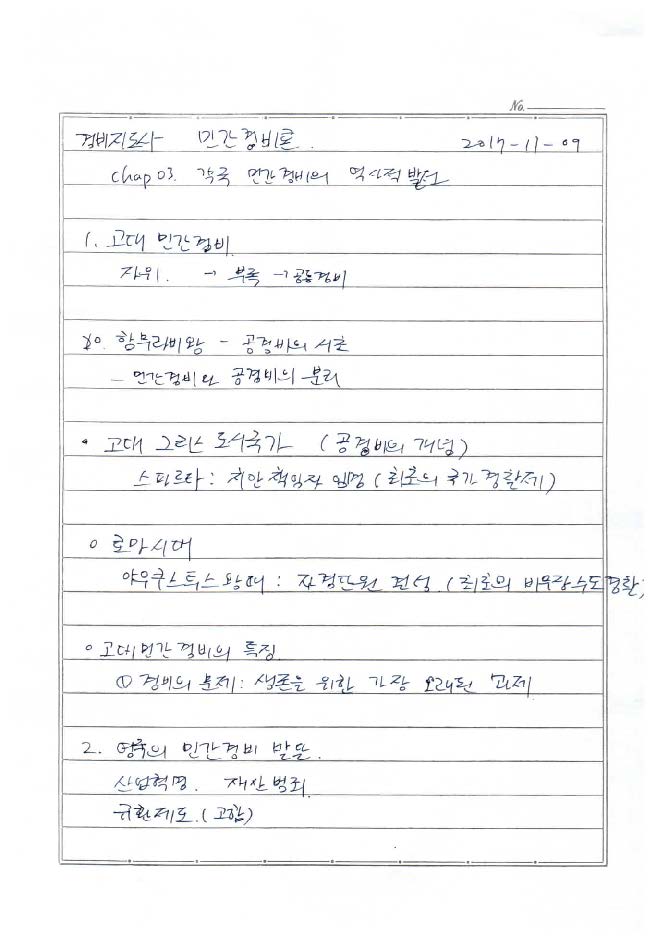 No.
경비지도사 민간경비론. 2017-11-09
chap 03. 각국 민간경비의 역사적 발전
1. 고대 민간경비
자위. → 부족 → 공동경비
함무라비왕 - 공경비의 시초
- 민간경비와 공경비의 분리
• 고대 그리스 도시국가 (공경비의 개념)
스파르타: 치안책임자 임명 (최초의 국가경찰제)
○ 로마시대
아우구스투스왕때: 자경단원 결성. (최초의 비무장수도경찰)
○ 고대민간경비의 특징
① 경비의 문제: 생존을 위한 가장 오래된 과제
2. 영국의 민간경비 발달.
산업혁명. 재산범죄.
규환제도. (고함)